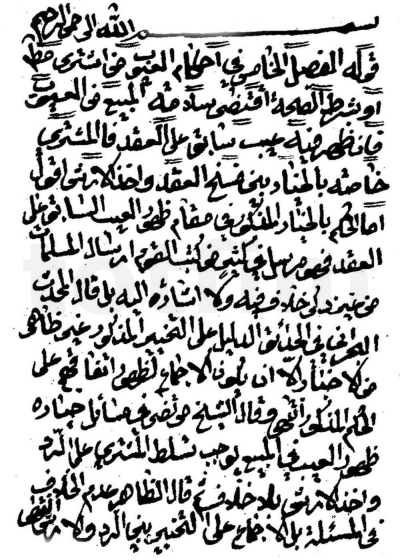 بسم الله الرحمن الرحيم
قوله الفصل الخامس في احكام العيوب من اشترى مطلقا
او بشرط الصحة اقتضى سلامة المبيع من العيوب
فان ظهر فيه عيب سابق على العقد فالمشتري
خاصة بالخيار بين فسخ العقد واخذ الارش اقول
اما الحكم بالخيار المذكور في مقام ظهور العيب السابق على
العقد فهو مرسل في كثير من كتب القوم ارسال المسلمات
من غير ذكر خلاف فيه ولا اشارة اليه بل قال المحدث
البحراني في الحدائق الدليل على التخيير المذكور غير ظاهر
من الاخبار والا ان يكون الاجماع لظهور اتفاقهم على
الحكم المذكور انتهى وقال الشيخ مرتضى في مسائل خياره
ظهور العيب في المبيع يوجب تسلط المشتري على الرد
واخذ الارش بلا خلاف قال الظاهر عدم الخلاف
في المسئلة بل الاجماع على التخيير بين الرد والارش انتهى